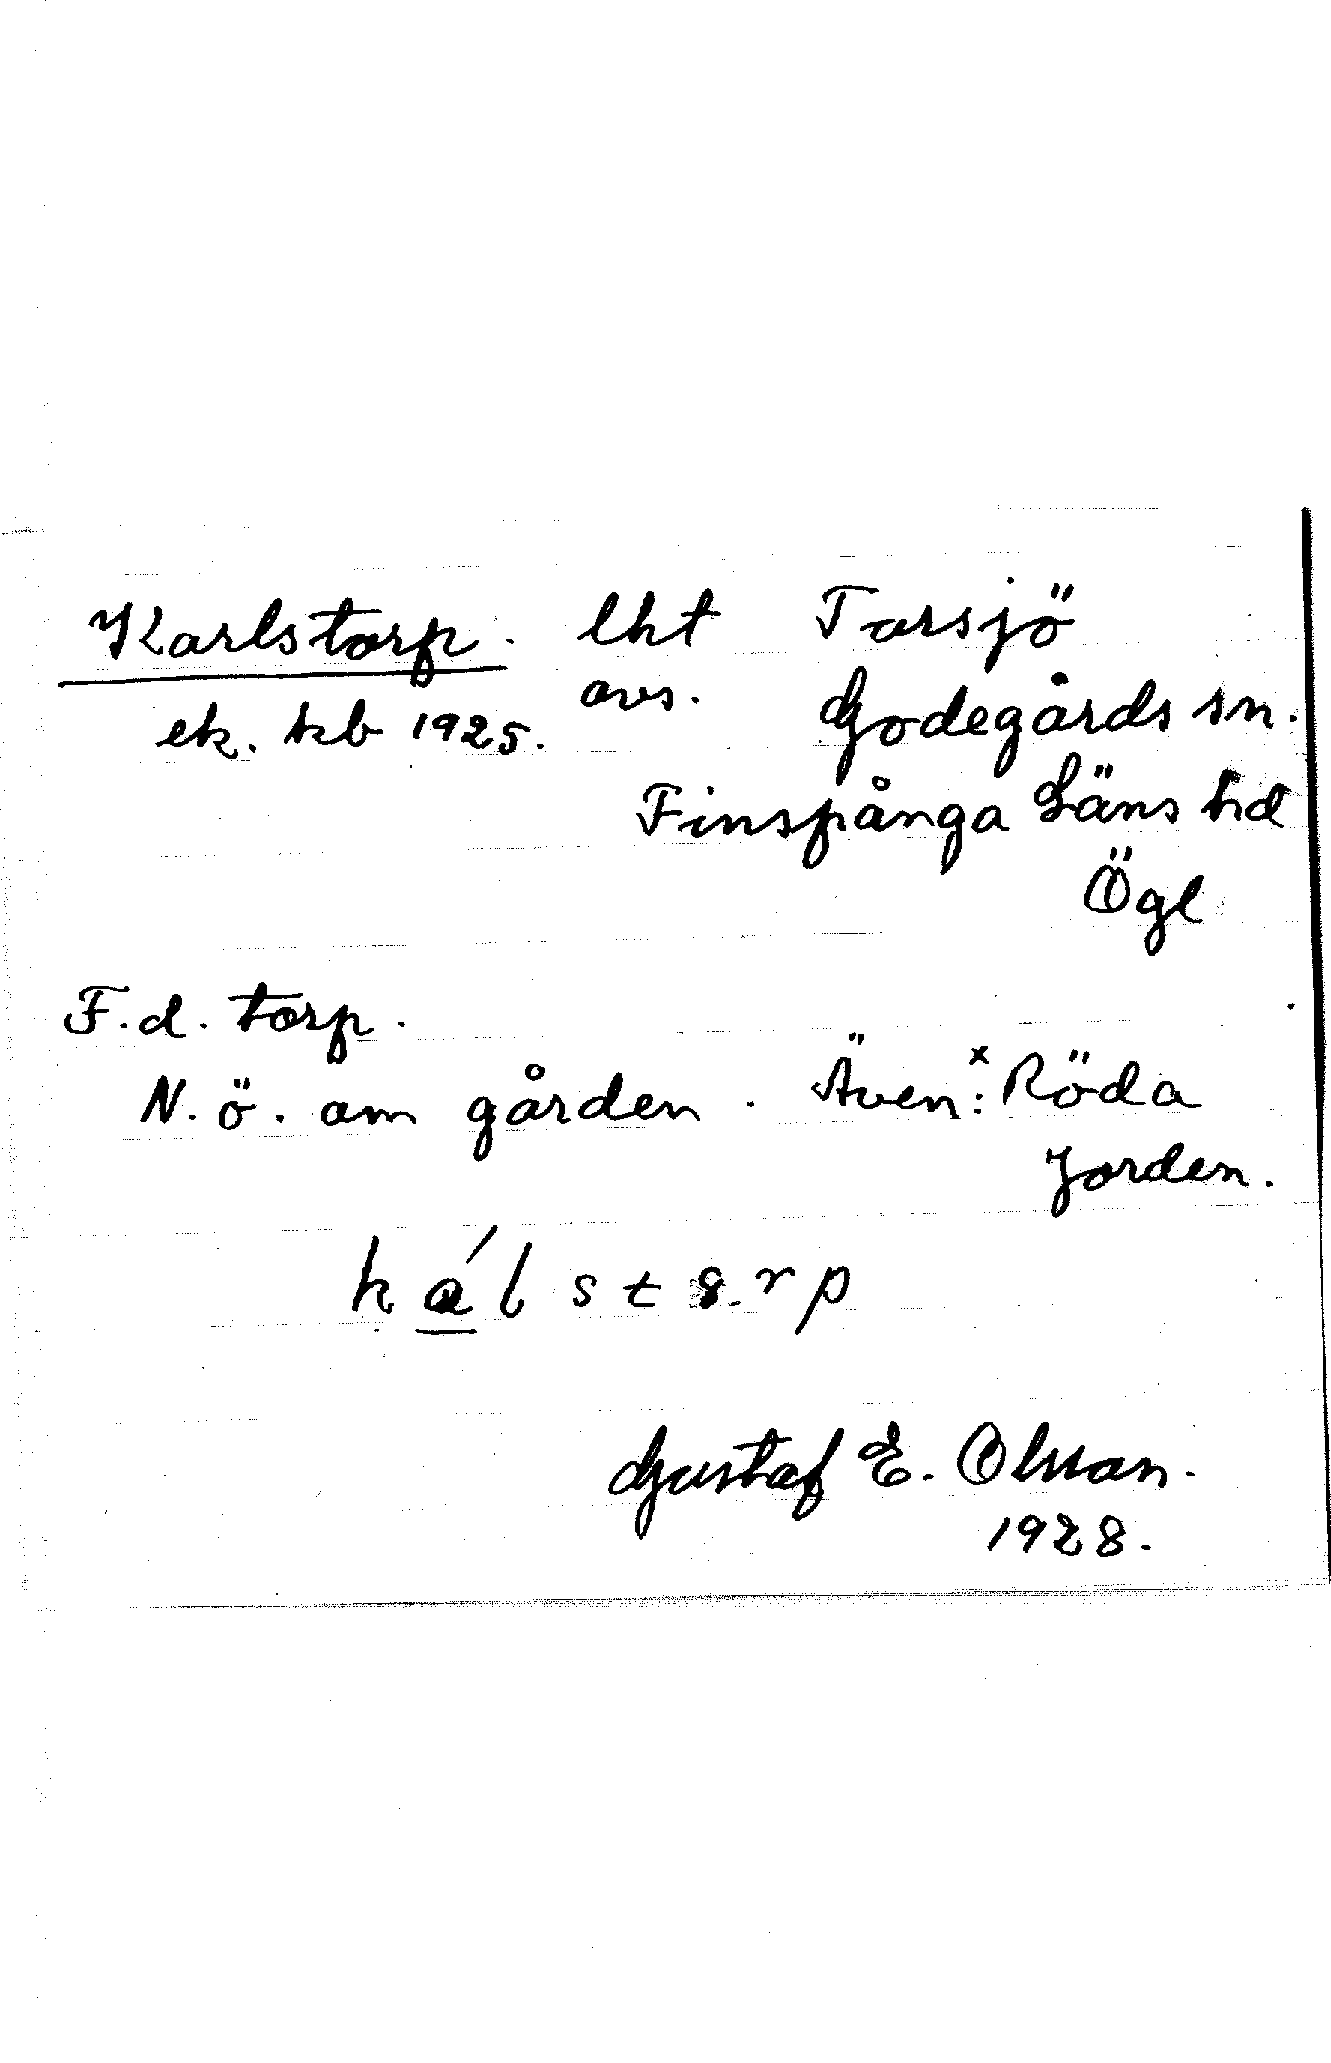 Karlstorp. lht Torsjö
ek. kb 1925. avs. Godegårds sn.
Finspånga Läns hd
Ögl
F.d. torp.
N.ö. om gården. Även: ˣRöda
Jorden.
Gustaf E. Olsson.
1928.